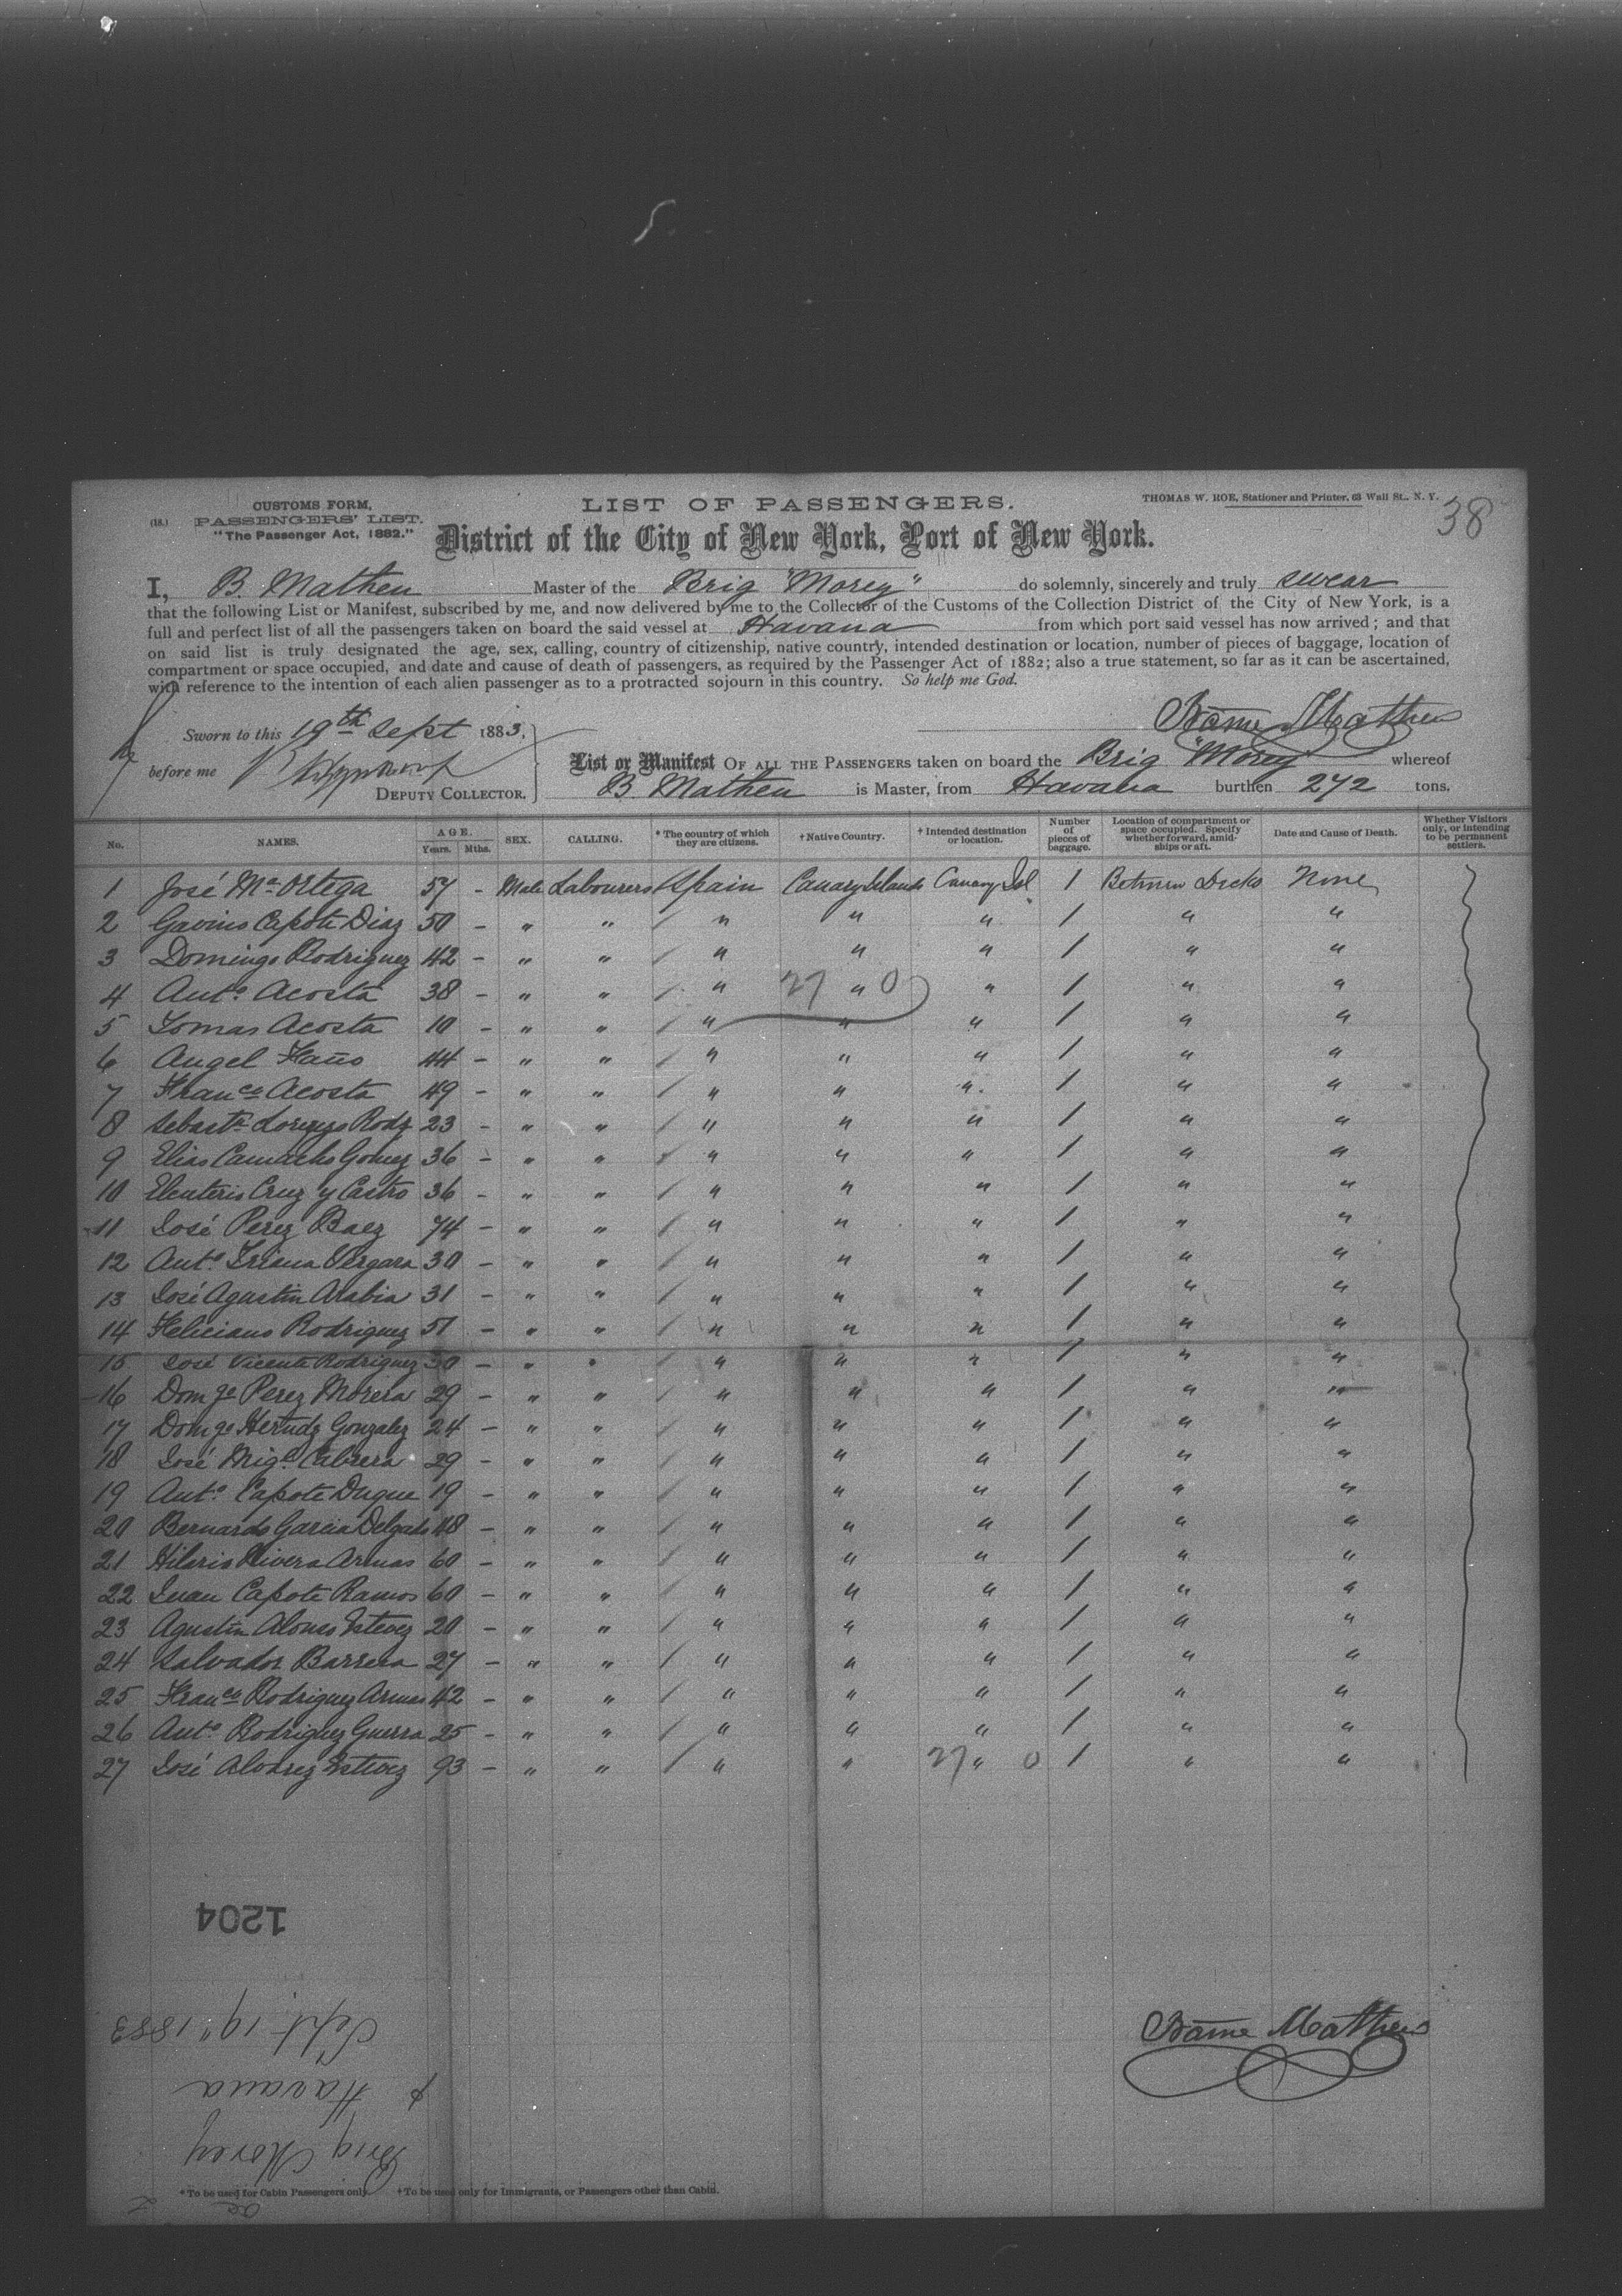 CUSTOMS FORM,
(18.) PASSENGERS' LIST.
"The Passenger Act, 1882."
LIST OF PASSENGERS.
THOMAS W. ROE, Stationer and Printer, 63 Wall St., N. Y.
38
District of the City of New York, Port of New York.
I, B. Matheu Master of the Brig "Morey" do solemnly, sincerely and truly swear
that the following List or Manifest, subscribed by me, and now delivered by me to the Collector of the Customs of the Collection District of the City of New York, is a
full and perfect list of all the passengers taken on board the said vessel at Havana from which port said vessel has now arrived; and that
on said list is truly designated the age, sex, calling, country of citizenship, native country, intended destination or location, number of pieces of baggage, location of
compartment or space occupied, and date and cause of death of passengers, as required by the Passenger Act of 1882; also a true statement, so far as it can be ascertained,
with reference to the intention of each alien passenger as to a protracted sojourn in this country. So help me God.
Bame Matheu
Sworn to this 19th Sept 1883,
before me
DEPUTY COLLECTOR.
List or Manifest OF ALL THE PASSENGERS taken on board the Brig "Morey" whereof
B. Matheu is Master, from Havana burthen 272 tons.
No. NAMES. AGE. Years. Mths. SEX. CALLING. * The country of which they are citizens. † Native Country. † Intended destination or location. Number of pieces of baggage. Location of compartment or space occupied. Specify whether forward, amidships or aft. Date and Cause of Death. Whether Visitors only, or intending to be permanent settlers.
1 José Ma Ortega 57 - Male Labourers Spain Canary Islands Canary Isl 1 Between Decks None
2 Gavino Capote Diaz 50 - " " " " " 1 " "
3 Domingo Rodriguez 42 - " " " " " 1 " "
4 Anto Acosta 38 - " " " 27 " 0 " 1 " "
5 Tomas Acosta 10 - " " " " " 1 " "
6 Angel Faño 44 - " " " " " 1 " "
7 Franco Acosta 49 - " " " " " 1 " "
8 Sebastn Lorenzo Rodz 23 - " " " " " 1 " "
9 Elias Camacho Gomez 36 - " " " " " 1 " "
10 Eleuterio Cruz y Castro 36 - " " " " " 1 " "
11 José Perez Baez 74 - " " " " " 1 " "
12 Anto Triana Vergara 30 - " " " " " 1 " "
13 José Agustin Arabia 31 - " " " " " 1 " "
14 Feliciano Rodriguez 51 - " " " " " 1 " "
15 José Vicente Rodriguez 30 - " " " " " 1 " "
16 Domgo Perez Morera 29 - " " " " " 1 " "
17 Domgo Herndz Gonzalez 24 - " " " " " 1 " "
18 José Migl Cabrera 29 - " " " " " 1 " "
19 Anto Capote Duque 19 - " " " " " 1 " "
20 Bernardo Garcia Delgado 48 - " " " " " 1 " "
21 Hilario Rivera Armas 60 - " " " " " 1 " "
22 Juan Capote Ramos 60 - " " " " " 1 " "
23 Agustin Alonso Estevez 20 - " " " " " 1 " "
24 Salvador Barrera 27 - " " " " " 1 " "
25 Franco Rodriguez Armas 42 - " " " " " 1 " "
26 Anto Rodriguez Guerra 25 - " " " " " 1 " "
27 José Alvarez Estevez 93 - " " " " 27 " 0 1 " "
1204
Bame Matheu
Brig Morey
Havana
Sept 19" 1883
* To be used for Cabin Passengers only. † To be used only for Immigrants, or Passengers other than Cabin.